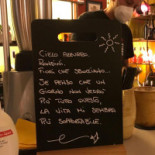 CIELO AZZURRO.
RONDINI.
FIORI CHE SBOCCIANO...
SE PENSO CHE UN
GIORNO NON VEDRÒ
PIÙ TUTTO QUESTO,
LA VITA MI SEMBRA
PIÙ SOPPORTABILE.